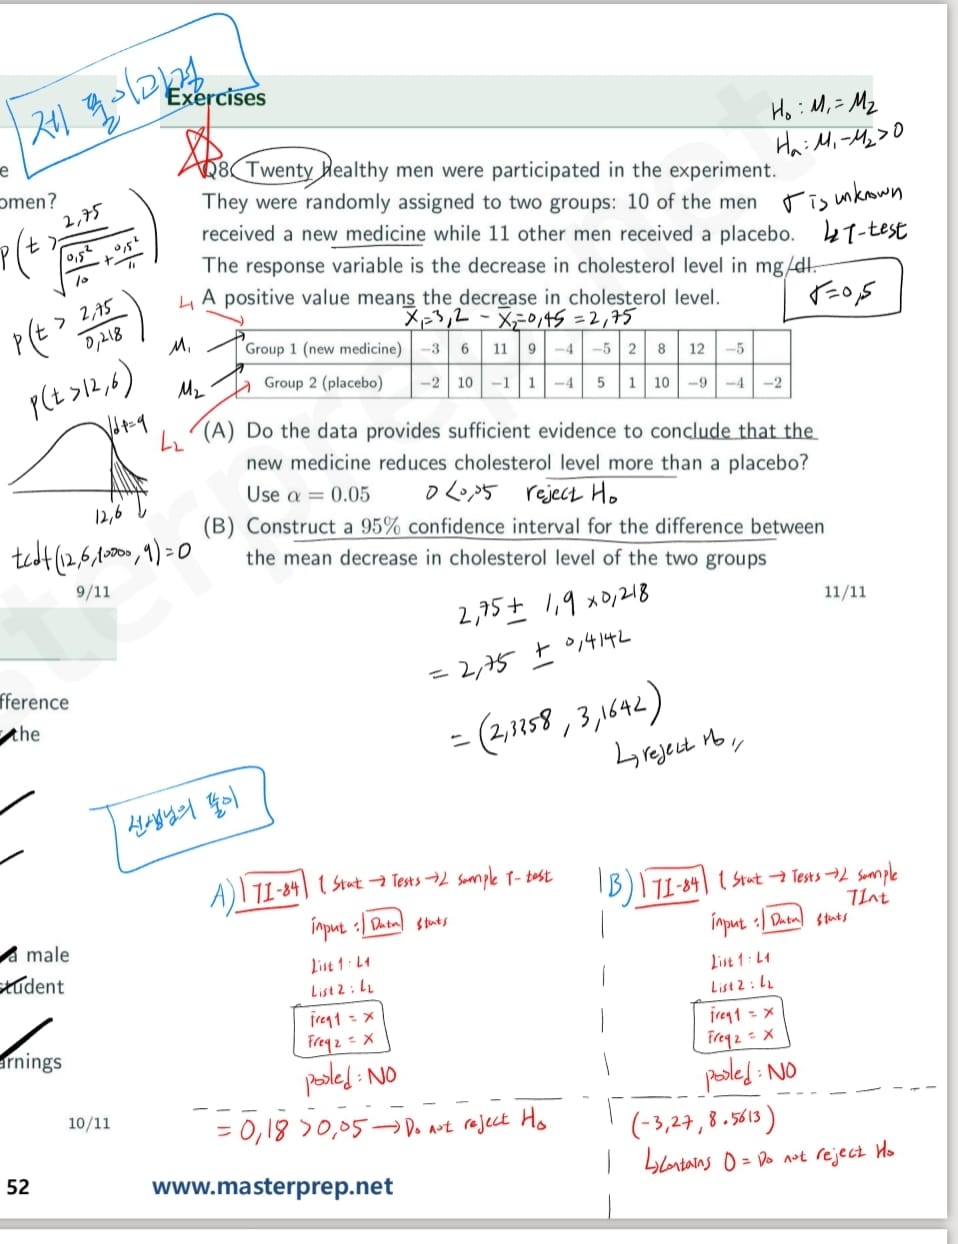 제 풀이과정
Exercises
H₀ : M₁ = M₂
Hₐ : M₁-M₂>0
e
Q8. Twenty healthy men were participated in the experiment.
omen?
They were randomly assigned to two groups: 10 of the men
σ is unknown
received a new medicine while 11 other men received a placebo.
↳ T-test
The response variable is the decrease in cholesterol level in mg/dl.
A positive value means the decrease in cholesterol level.
σ=0,5
X̄₁=3,2 - X̄₂=0,45 = 2,75
L₁
M₁
Group 1 (new medicine) −3 6 11 9 −4 −5 2 8 12 −5
M₂
Group 2 (placebo) −2 10 −1 1 −4 5 1 10 −9 −4 −2
L₂
P(t > 2,75 / √(0,5²/10 + 0,5²/11))
P(t > 2,75/0,218)
P(t >12,6)
df=9
12,6
tcdf(12,6,10000,9)=0
(A) Do the data provides sufficient evidence to conclude that the
new medicine reduces cholesterol level more than a placebo?
Use α = 0.05
0 <0,05 reject H₀
(B) Construct a 95% confidence interval for the difference between
the mean decrease in cholesterol level of the two groups
9/11
11/11
2,75 ± 1,9 x0,218
= 2,75 ± 0,4142
= (2,3358 , 3,1642)
↳ reject H₀ //
fference
the
선생님의 풀이
A) TI-84 ( Stat → Tests →2 Sample T-test
input : Data Stats
List 1 : L1
List 2 : L2
freq1 = x
Freq2 = x
pooled : NO
= 0,18 >0,05 → Do not reject H₀
B) TI-84 ( Stat → Tests →2 Sample
TInt
input : Data Stats
List 1 : L1
List 2 : L2
freq1 = x
Freq2 = x
pooled : NO
(-3,27, 8.5613)
↳ contains 0 = Do not reject H₀
a male
student
arnings
10/11
52
www.masterprep.net